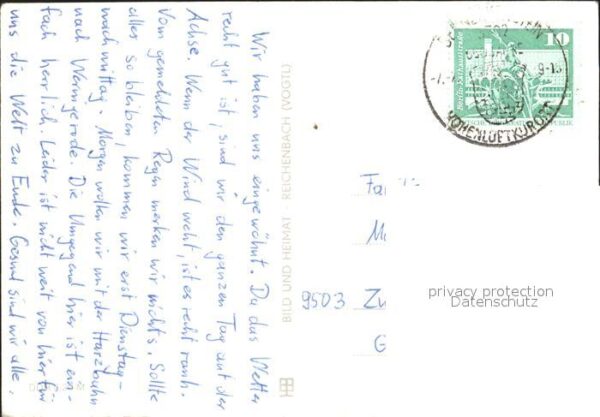 Wir haben uns eingewöhnt. Da das Wetter
recht gut ist, sind wir den ganzen Tag auf der
Achse. Wenn der Wind weht, ist es recht rauh.
Vom gemeldeten Regen merken wir nichts. Sollte
alles so bleiben, kommen wir erst Dienstag-
nachmittag. Morgen wollen wir mit der Harzbahn
nach Wernigerode. Die Umgegend hier ist ein-
fach herrlich. Leider ist nicht weit von hier für
uns die Welt zu Ende. Gesund sind wir alle.
BILD UND HEIMAT · REICHENBACH (VOGTL)
10
HÖHENLUFTKURORT
Fa
M
9503 Zw
G
privacy protection
Datenschutz